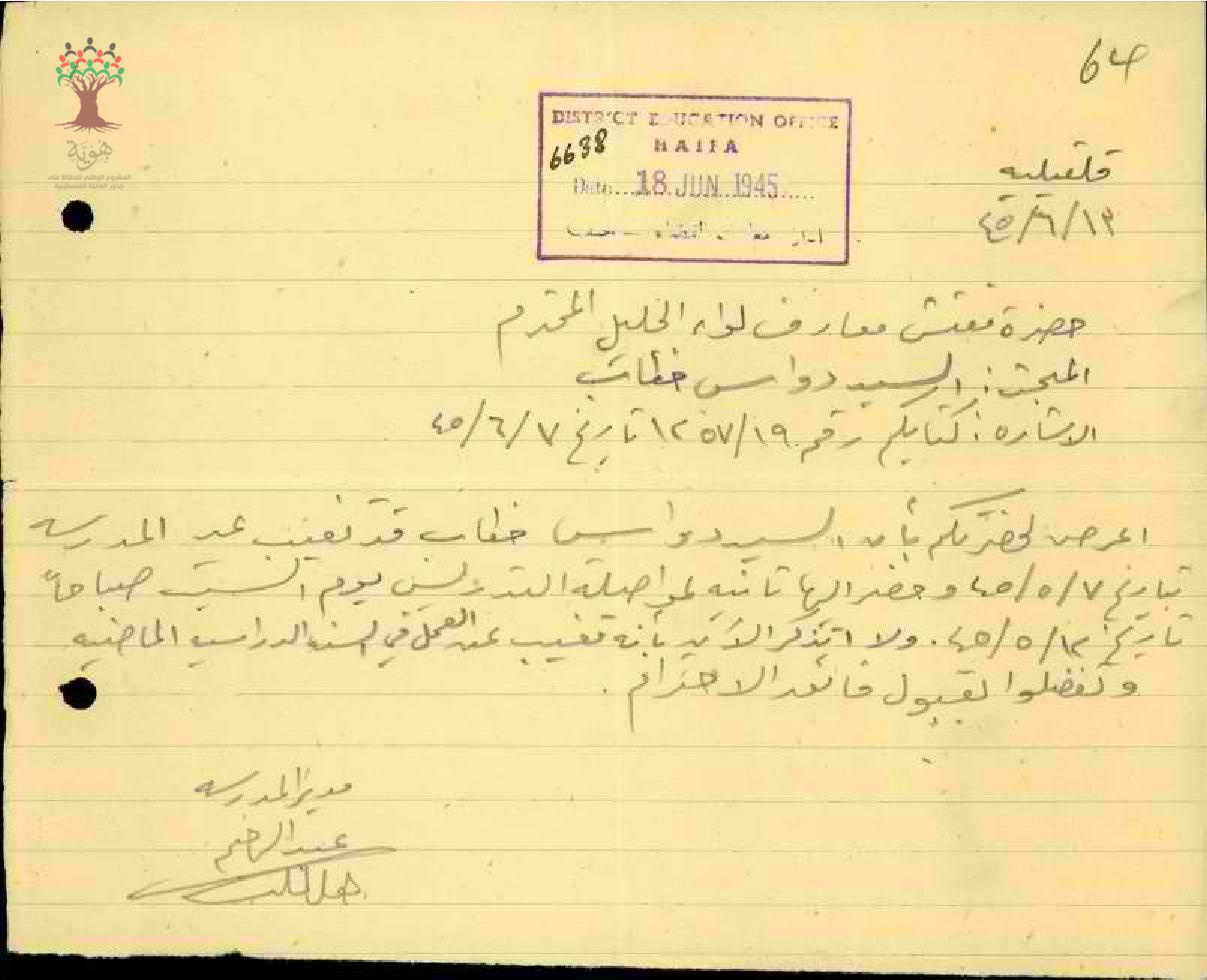 64
هوية
المشروع الوطني للحفاظ على
جذور العائلة الفلسطينية
DISTRICT EDUCATION OFFICE
6638
HAIFA
Date 18 JUN 1945
قلقيليه
٤٥/٦/١٣
حضرة مفتش معارف لواء الخليل المحترم
المبحث: السيد دواس خطاب
الاشاره: كتابكم رقم ١٢٥٧/١٩ تاريخ ٤٥/٦/٧
اعرض لحضرتكم بأن السيد دواس خطاب قد تغيب عن المدرسه
تاريخ ٤٥/٥/٧ وحضر اليها ثانيه لمواصلة التدريس يوم السبت صباحاً
تاريخ ٤٥/٥/١٢. ولا اتذكر الآن بأنه تغيب عن العمل في السنه الدراسيه الماضيه
وتفضلوا بقبول فائق الاحترام.
مدير المدرسه
عبد الرحيم